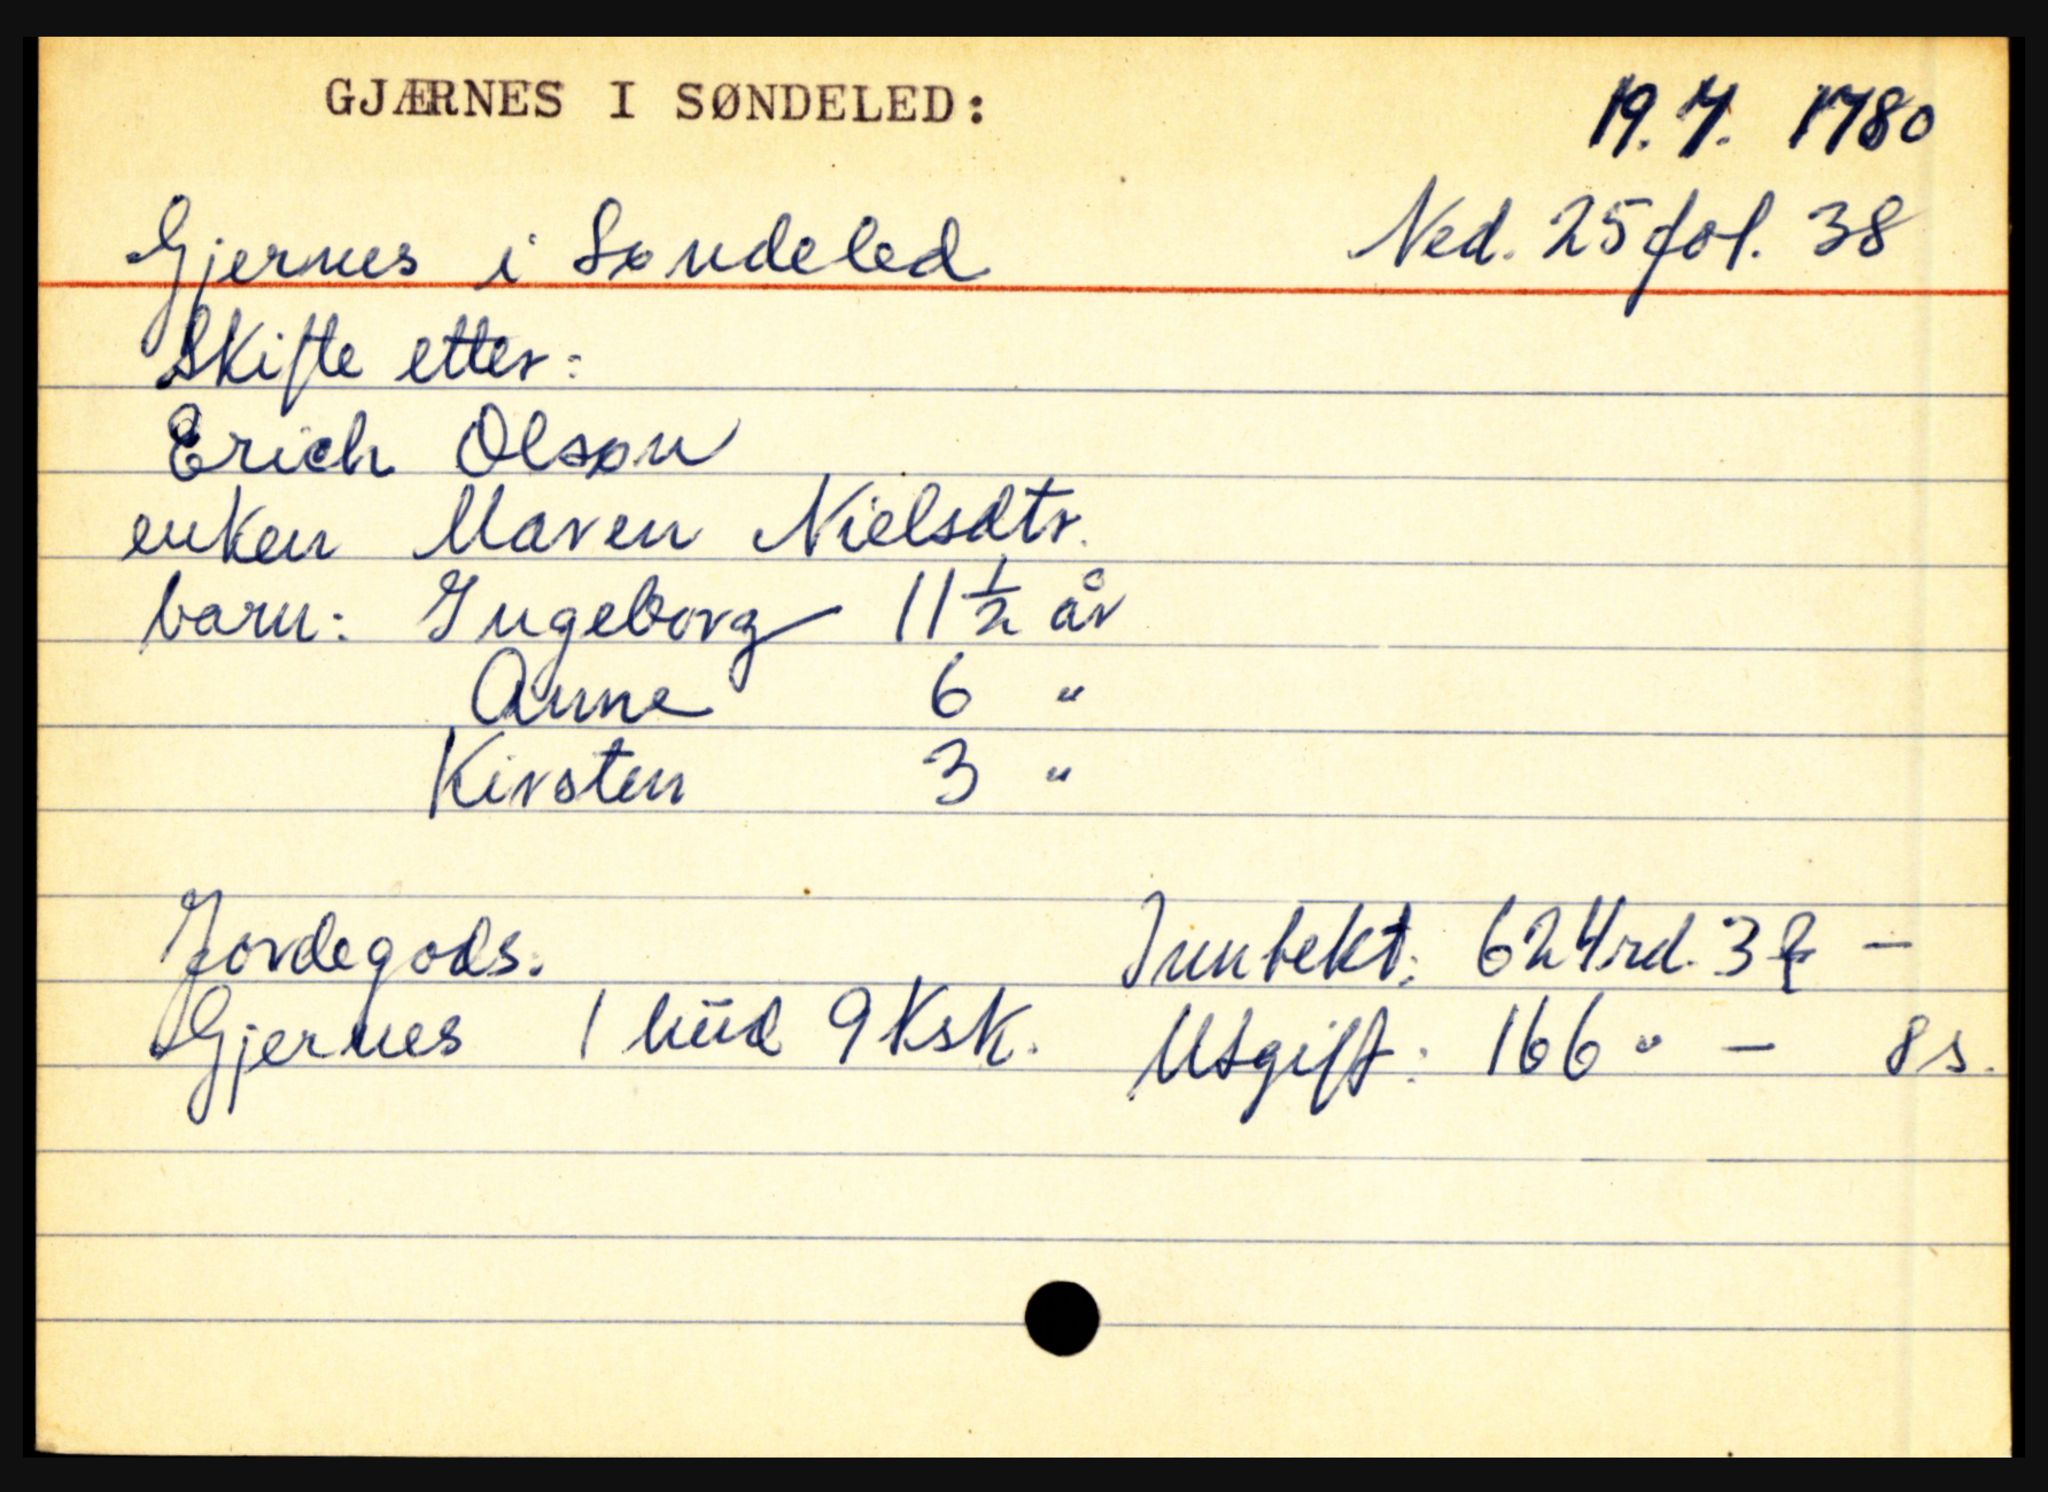 GJÆRNES I SØNDELED:
19. 7. 1780
Gjernes i Søndeled
Ned. 25 fol. 38
Skifte etter:
Erich Olsøn
enken Maren Nielsdtr.
barn: Ingeborg 11 1/2 år
Anne 6 "
Kirsten 3 "
Jordegods:
Gjernes 1 hüd 9 Ksk.
Inntekt: 624 rd. 3 —
Utgift: 166 " — 8 s.